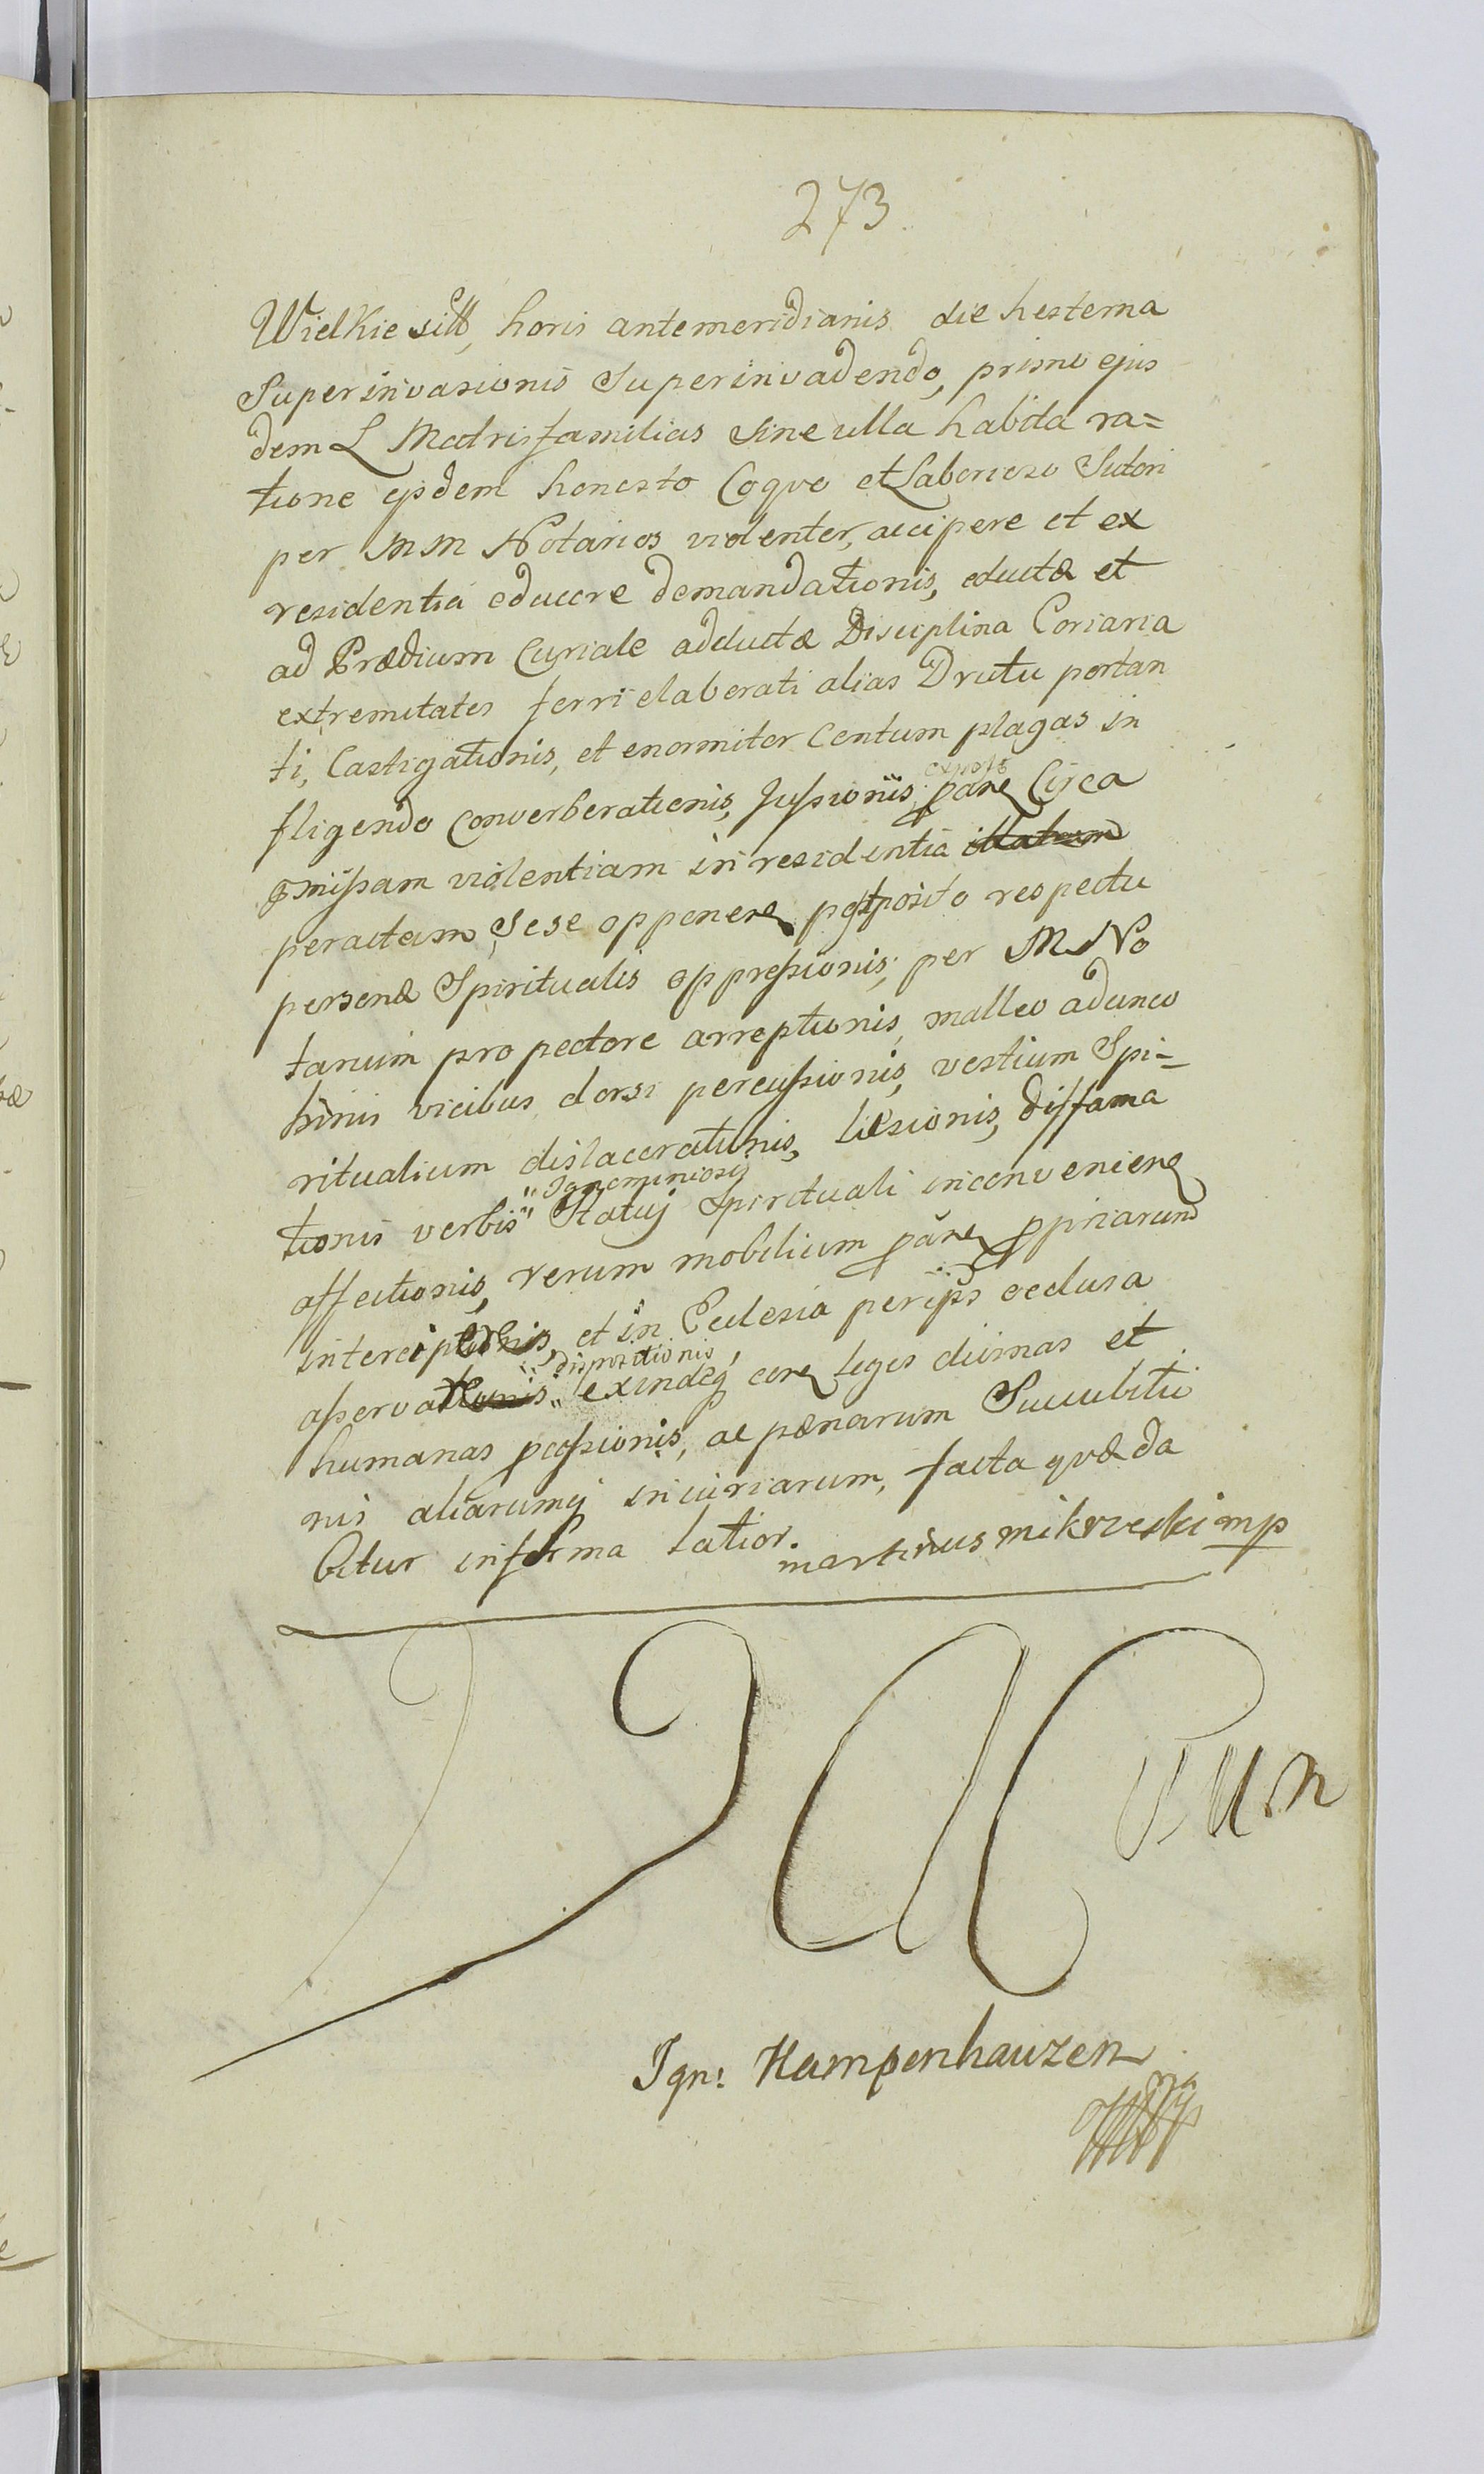 273.
Wielkie sitt, horis antemeridianis die hesterna
Superinvasionis Superinvadendo, primo ejus
dem L Matrisfamilias sine ulla habita ra=
tione ejsdem honesto Coqvo et Laborioso Sutori
per MM Notarios violenter, accipere et ex
residentia educere demandationis, eductæ et
ad Prædium Curiale adductæ Disciplina Coriaria
extremitates ferri elaborati alias Drutu portan
ti, Castigationis, et enormiter Centum plagas in
fligendo Converberationis, Jussionis, Circa
missam violentiam in residentia illatam
peractam, Sese opponen postposito respectu
personæ Spiritualis oppressionis, per M No
tarium pro pectore arreptionis, malleo adunco
binis vicibus dorsi percussionis, vestium Spi=
ritualium dislacerationis, læsionis, diffama
tionis verbis " Ignominiosis " Statuj Spirituali inconvenien
affectionis, rerum mobilium ppriarum
interceptionis, et in Eclesia per ips oclusa
asservationis " dispositionis, " exindeq leges divinas et
humanas pcessionis, ac pænarum Succubitio
nis aliarumq iniuriarum, facta qvæ da
bitur in forma latior. martinus mikrzeski mp
Ign: Kampenhauzen